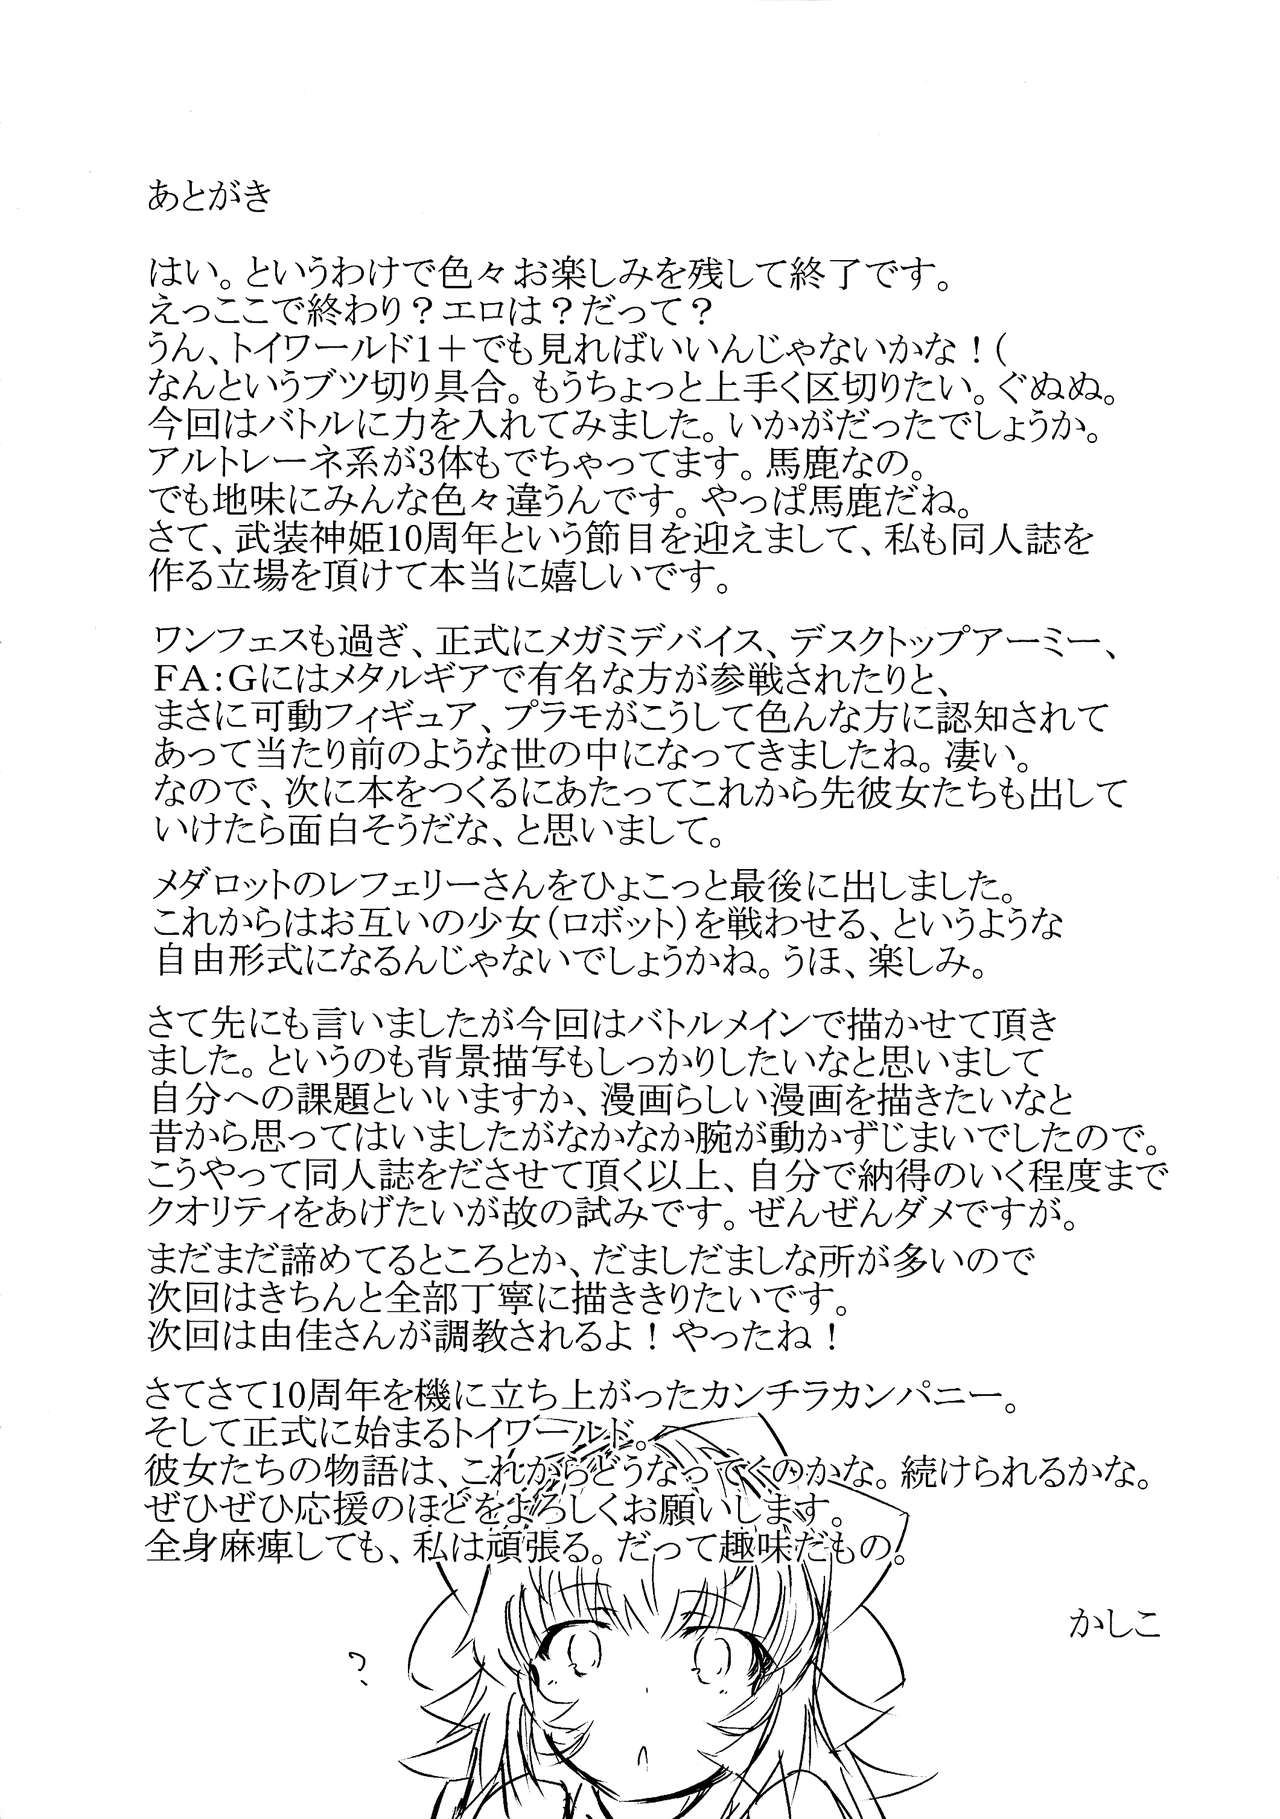 あとがき
はい。というわけで色々お楽しみを残して終了です。
えっここで終わり？エロは？だって？
うん、トイワールド1＋でも見ればいいんじゃないかな！(
なんというブツ切り具合。もうちょっと上手く区切りたい。ぐぬぬ。
今回はバトルに力を入れてみました。いかがだったでしょうか。
アルトレーネ系が3体もでちゃってます。馬鹿なの。
でも地味にみんな色々違うんです。やっぱ馬鹿だね。
さて、武装神姫10周年という節目を迎えまして、私も同人誌を
作る立場を頂けて本当に嬉しいです。
ワンフェスも過ぎ、正式にメガミデバイス、デスクトップアーミー、
FA:Gにはメタルギアで有名な方が参戦されたりと、
まさに可動フィギュア、プラモがこうして色んな方に認知されて
あって当たり前のような世の中になってきましたね。凄い。
なので、次に本をつくるにあたってこれから先彼女たちも出して
いけたら面白そうだな、と思いまして。
メダロットのレフェリーさんをひょこっと最後に出しました。
これからはお互いの少女(ロボット)を戦わせる、というような
自由形式になるんじゃないでしょうかね。うほ、楽しみ。
さて先にも言いましたが今回はバトルメインで描かせて頂き
ました。というのも背景描写もしっかりしたいなと思いまして
自分への課題といいますか、漫画らしい漫画を描きたいなと
昔から思ってはいましたがなかなか腕が動かずじまいでしたので。
こうやって同人誌をださせて頂く以上、自分で納得のいく程度まで
クオリティをあげたいが故の試みです。ぜんぜんダメですが。
まだまだ諦めてるところとか、だましだましな所が多いので
次回はきちんと全部丁寧に描ききりたいです。
次回は由佳さんが調教されるよ！やったね！
さてさて10周年を機に立ち上がったカンチラカンパニー。
そして正式に始まるトイワールド。
彼女たちの物語は、これからどうなってくのかな。続けられるかな。
ぜひぜひ応援のほどをよろしくお願いします。
全身麻痺しても、私は頑張る。だって趣味だもの。
かしこ
?